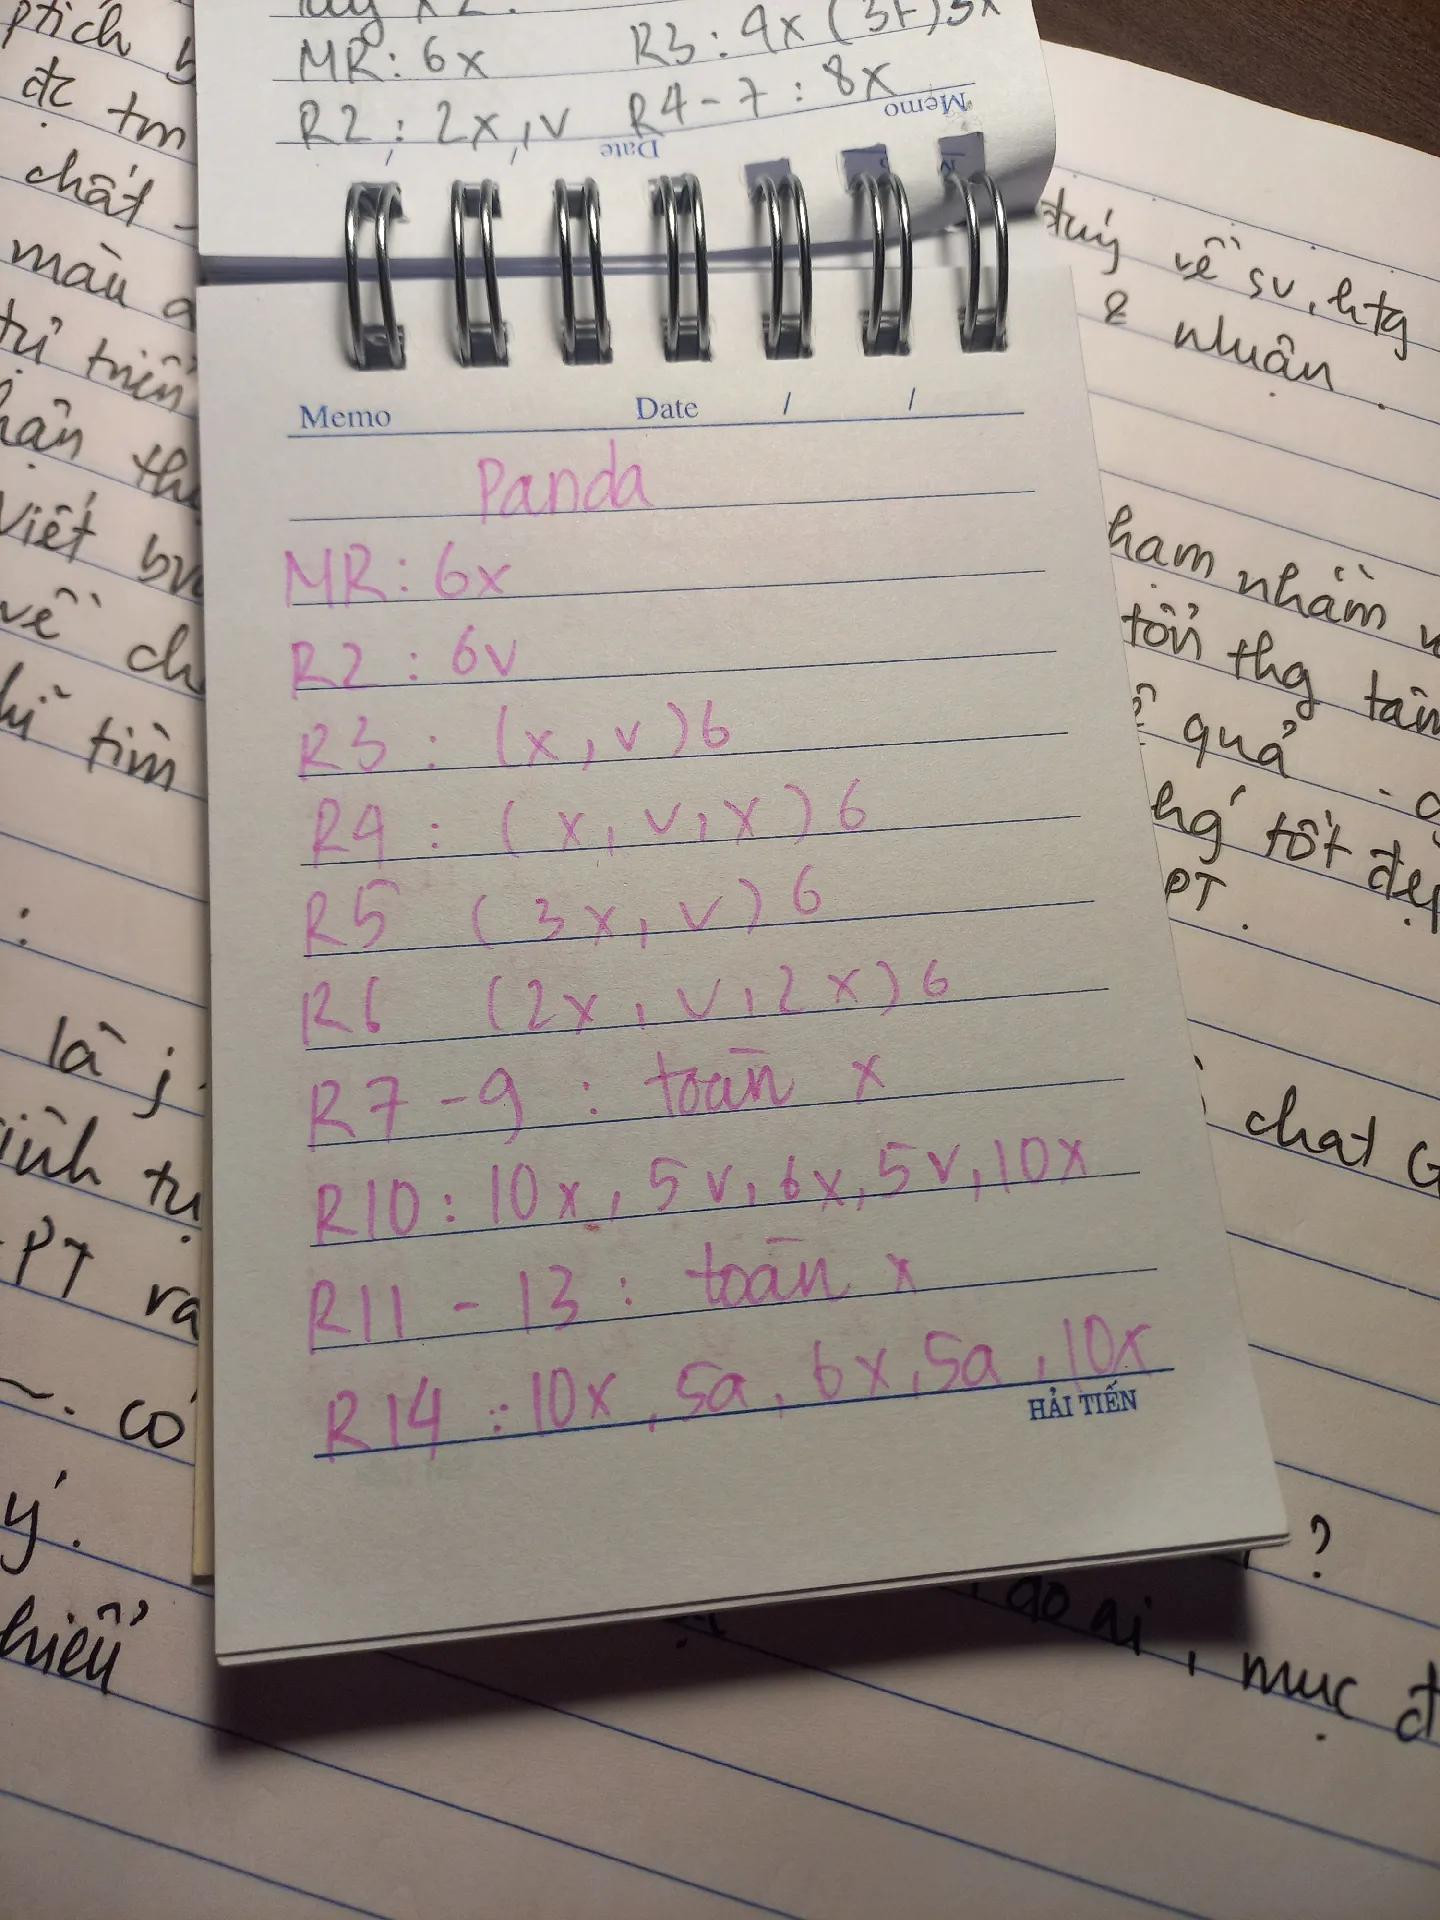 MR: 6x R3: 9x (3F) 3x
R2: 2x, v R4-7: 8x
Memo
Date
Memo Date / /
Panda
MR: 6x
R2: 6v
R3: (x, v)6
R4: (x, v, x)6
R5 (3x, v)6
R6 (2x, v, 2x)6
R7-9: toàn x
R10: 10x, 5v, 6x, 5v, 10x
R11-13: toàn x
R14: 10x, 5a, 6x, 5a, 10x
HẢI TIẾN
ptích
đc tm
chất -
màu
Viết
về
tìm
:
là j
PT ra
~. có
ý.
hiểu
về sv, htg
& nhuận.
ham nhầm
tổn thg tâm
quả
tốt đẹp
PT.
chat G
?
, mục đ